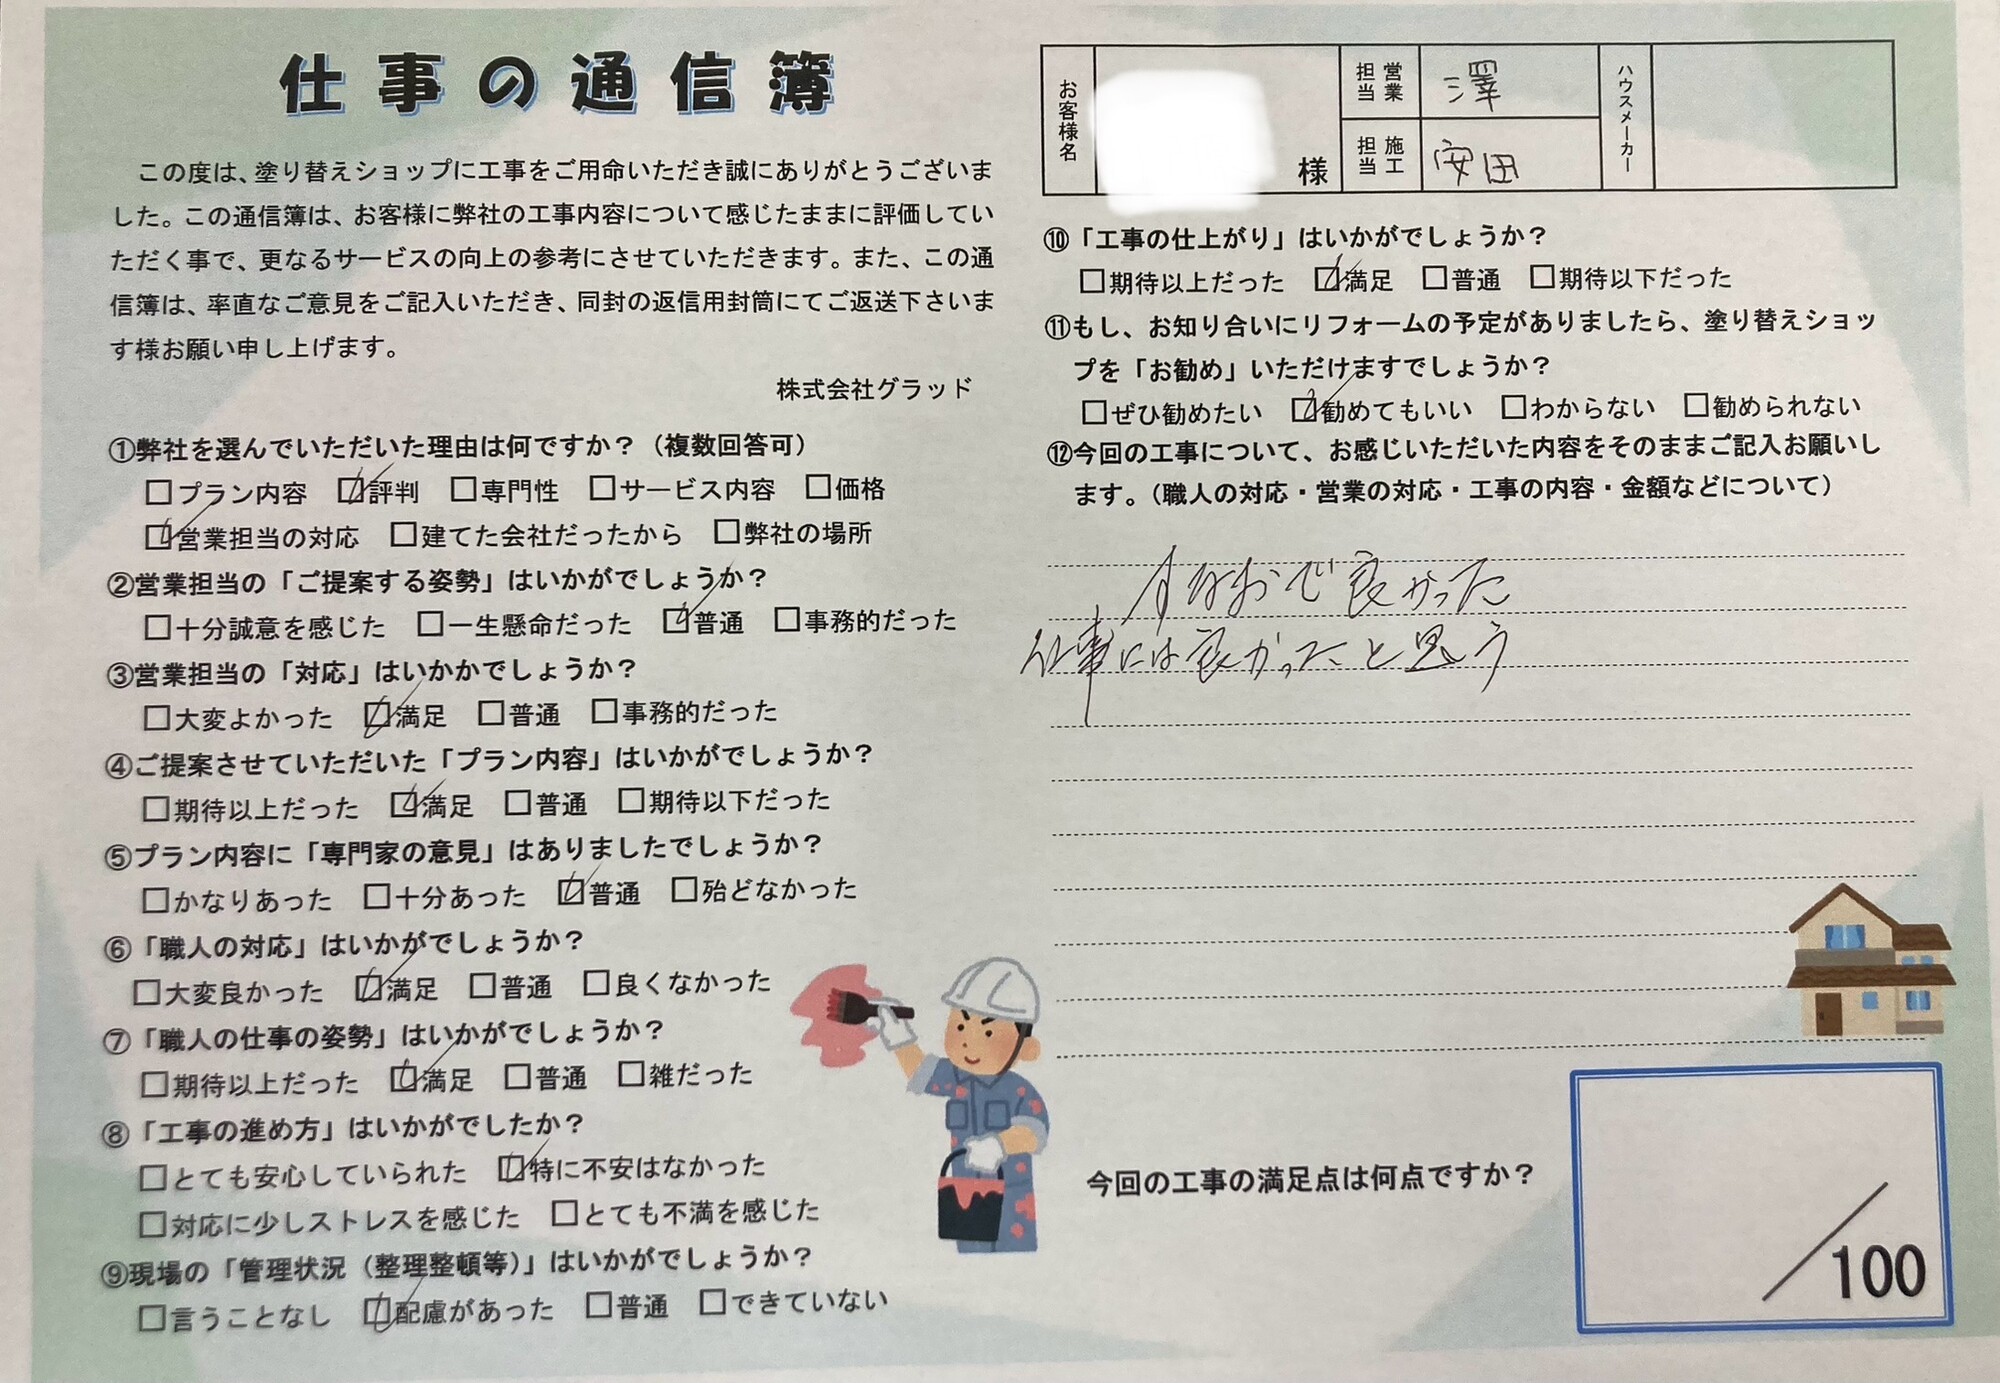 仕事の通信簿
この度は、塗り替えショップに工事をご用命いただき誠にありがとうございま
した。この通信簿は、お客様に弊社の工事内容について感じたままに評価してい
ただく事で、更なるサービスの向上の参考にさせていただきます。また、この通
信簿は、率直なご意見をご記入いただき、同封の返信用封筒にてご返送下さいま
す様お願い申し上げます。
株式会社グラッド
①弊社を選んでいただいた理由は何ですか？（複数回答可）
□プラン内容 ☑評判 □専門性 □サービス内容 □価格
☑営業担当の対応 □建てた会社だったから □弊社の場所
②営業担当の「ご提案する姿勢」はいかがでしょうか？
□十分誠意を感じた □一生懸命だった ☑普通 □事務的だった
③営業担当の「対応」はいかかでしょうか？
□大変よかった ☑満足 □普通 □事務的だった
④ご提案させていただいた「プラン内容」はいかがでしょうか？
□期待以上だった ☑満足 □普通 □期待以下だった
⑤プラン内容に「専門家の意見」はありましたでしょうか？
□かなりあった □十分あった ☑普通 □殆どなかった
⑥「職人の対応」はいかがでしょうか？
□大変良かった ☑満足 □普通 □良くなかった
⑦「職人の仕事の姿勢」はいかがでしょうか？
□期待以上だった ☑満足 □普通 □雑だった
⑧「工事の進め方」はいかがでしたか？
□とても安心していられた ☑特に不安はなかった
□対応に少しストレスを感じた □とても不満を感じた
⑨現場の「管理状況（整理整頓等）」はいかがでしょうか？
□言うことなし ☑配慮があった □普通 □できていない
お客様名 様 営業担当 澤 ハウスメーカー
施工担当 安田
⑩「工事の仕上がり」はいかがでしょうか？
□期待以上だった ☑満足 □普通 □期待以下だった
⑪もし、お知り合いにリフォームの予定がありましたら、塗り替えショッ
プを「お勧め」いただけますでしょうか？
□ぜひ勧めたい ☑勧めてもいい □わからない □勧められない
⑫今回の工事について、お感じいただいた内容をそのままご記入お願いし
ます。（職人の対応・営業の対応・工事の内容・金額などについて）
すなおで良かった
仕事には良かったと思う
今回の工事の満足点は何点ですか？
／100